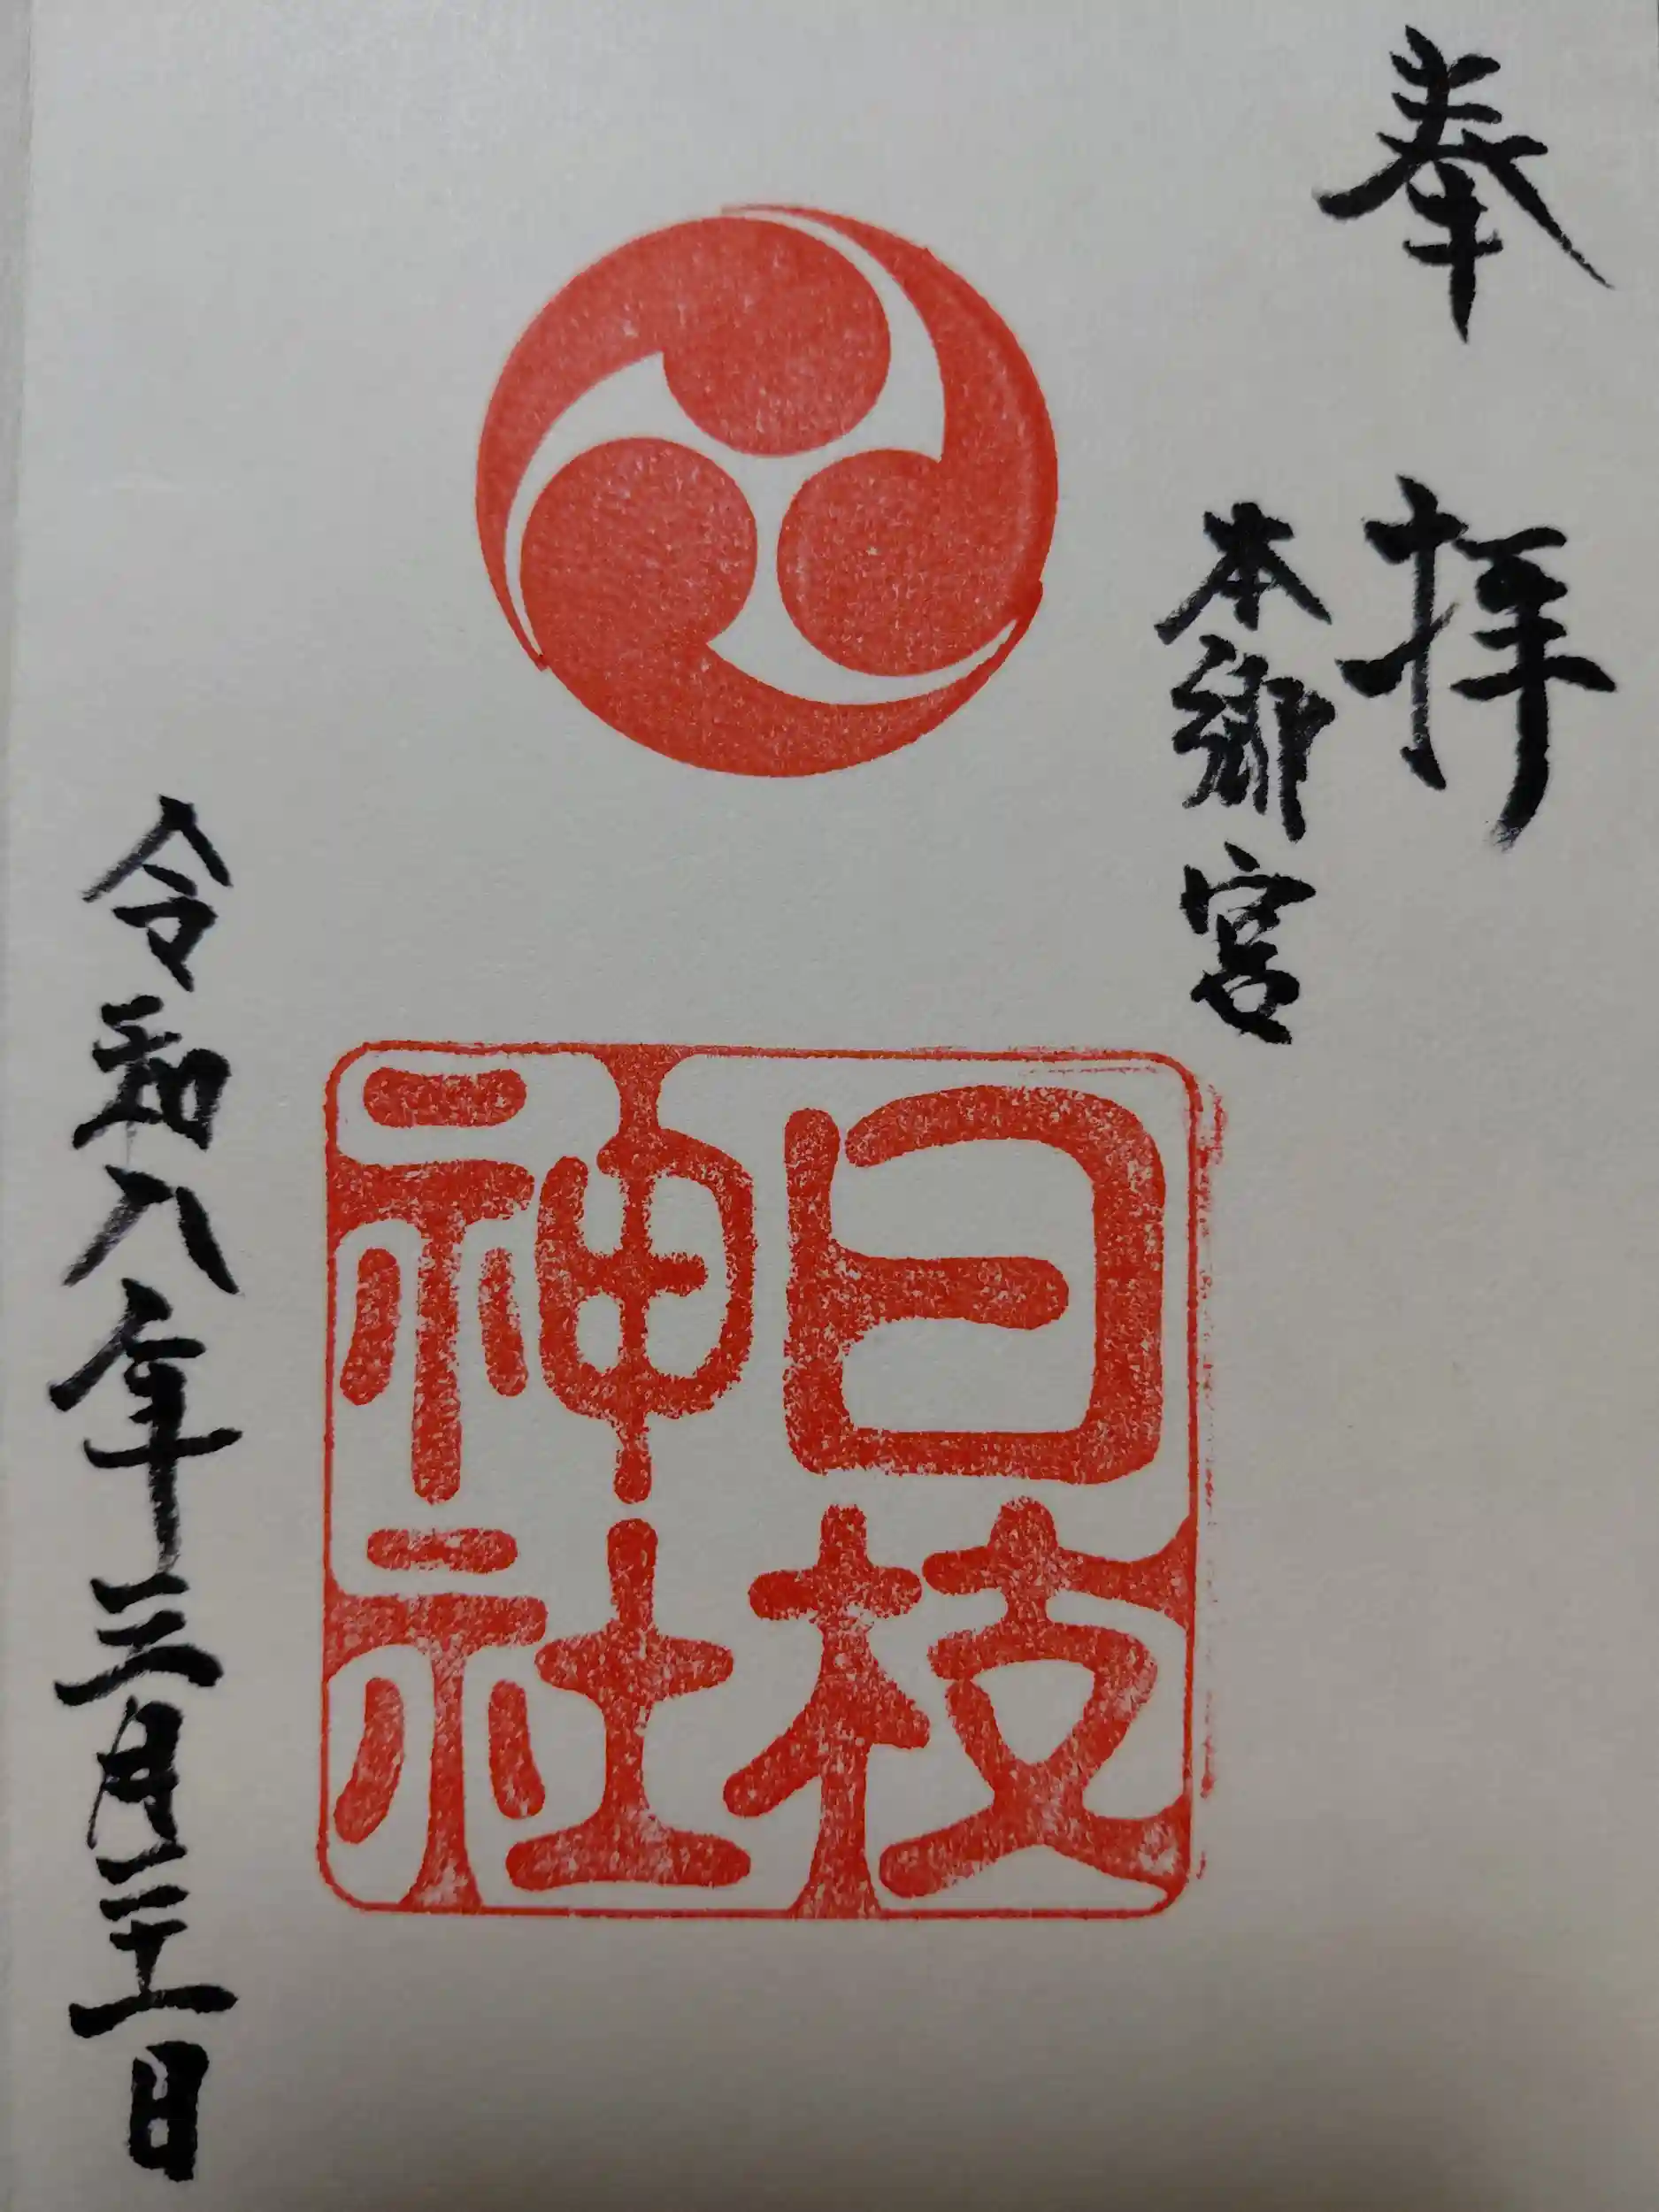 奉拝
本郷宮
日枝
神社
令和八年三月二十一日